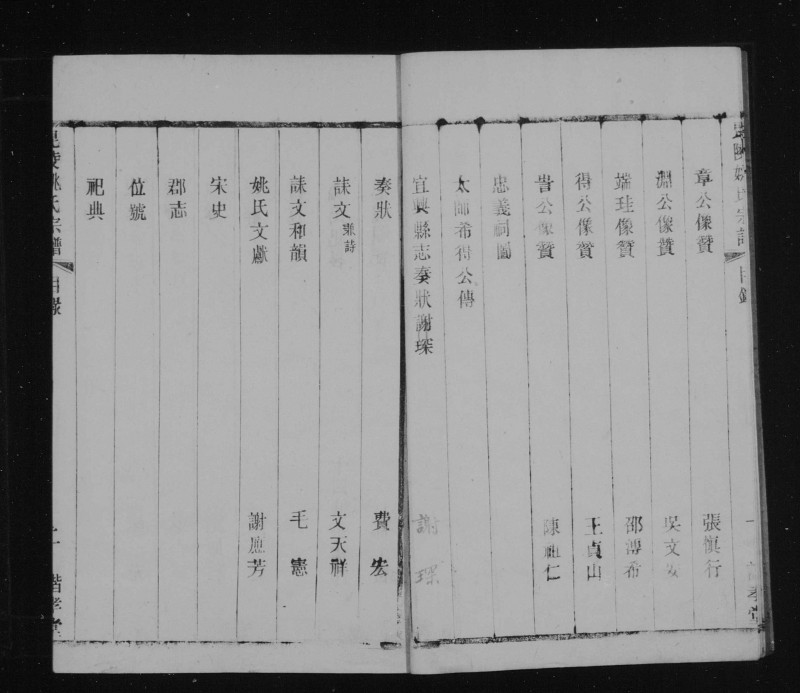 章公像贊 張慎行
淵公像贊 吳文
端珪像贊 邵溥希
得公像贊 王貞山
訔公像贊 陳祖仁
忠義祠圖
太師希得公傳
宜興縣志奏狀謝琛 謝琛
奏狀 費宏
誄文兼詩 文天祥
誄文和韻 毛憲
姚氏文獻 謝應芳
宋史
郡志
位號
祀典
毘陵姚氏宗譜 目錄 二